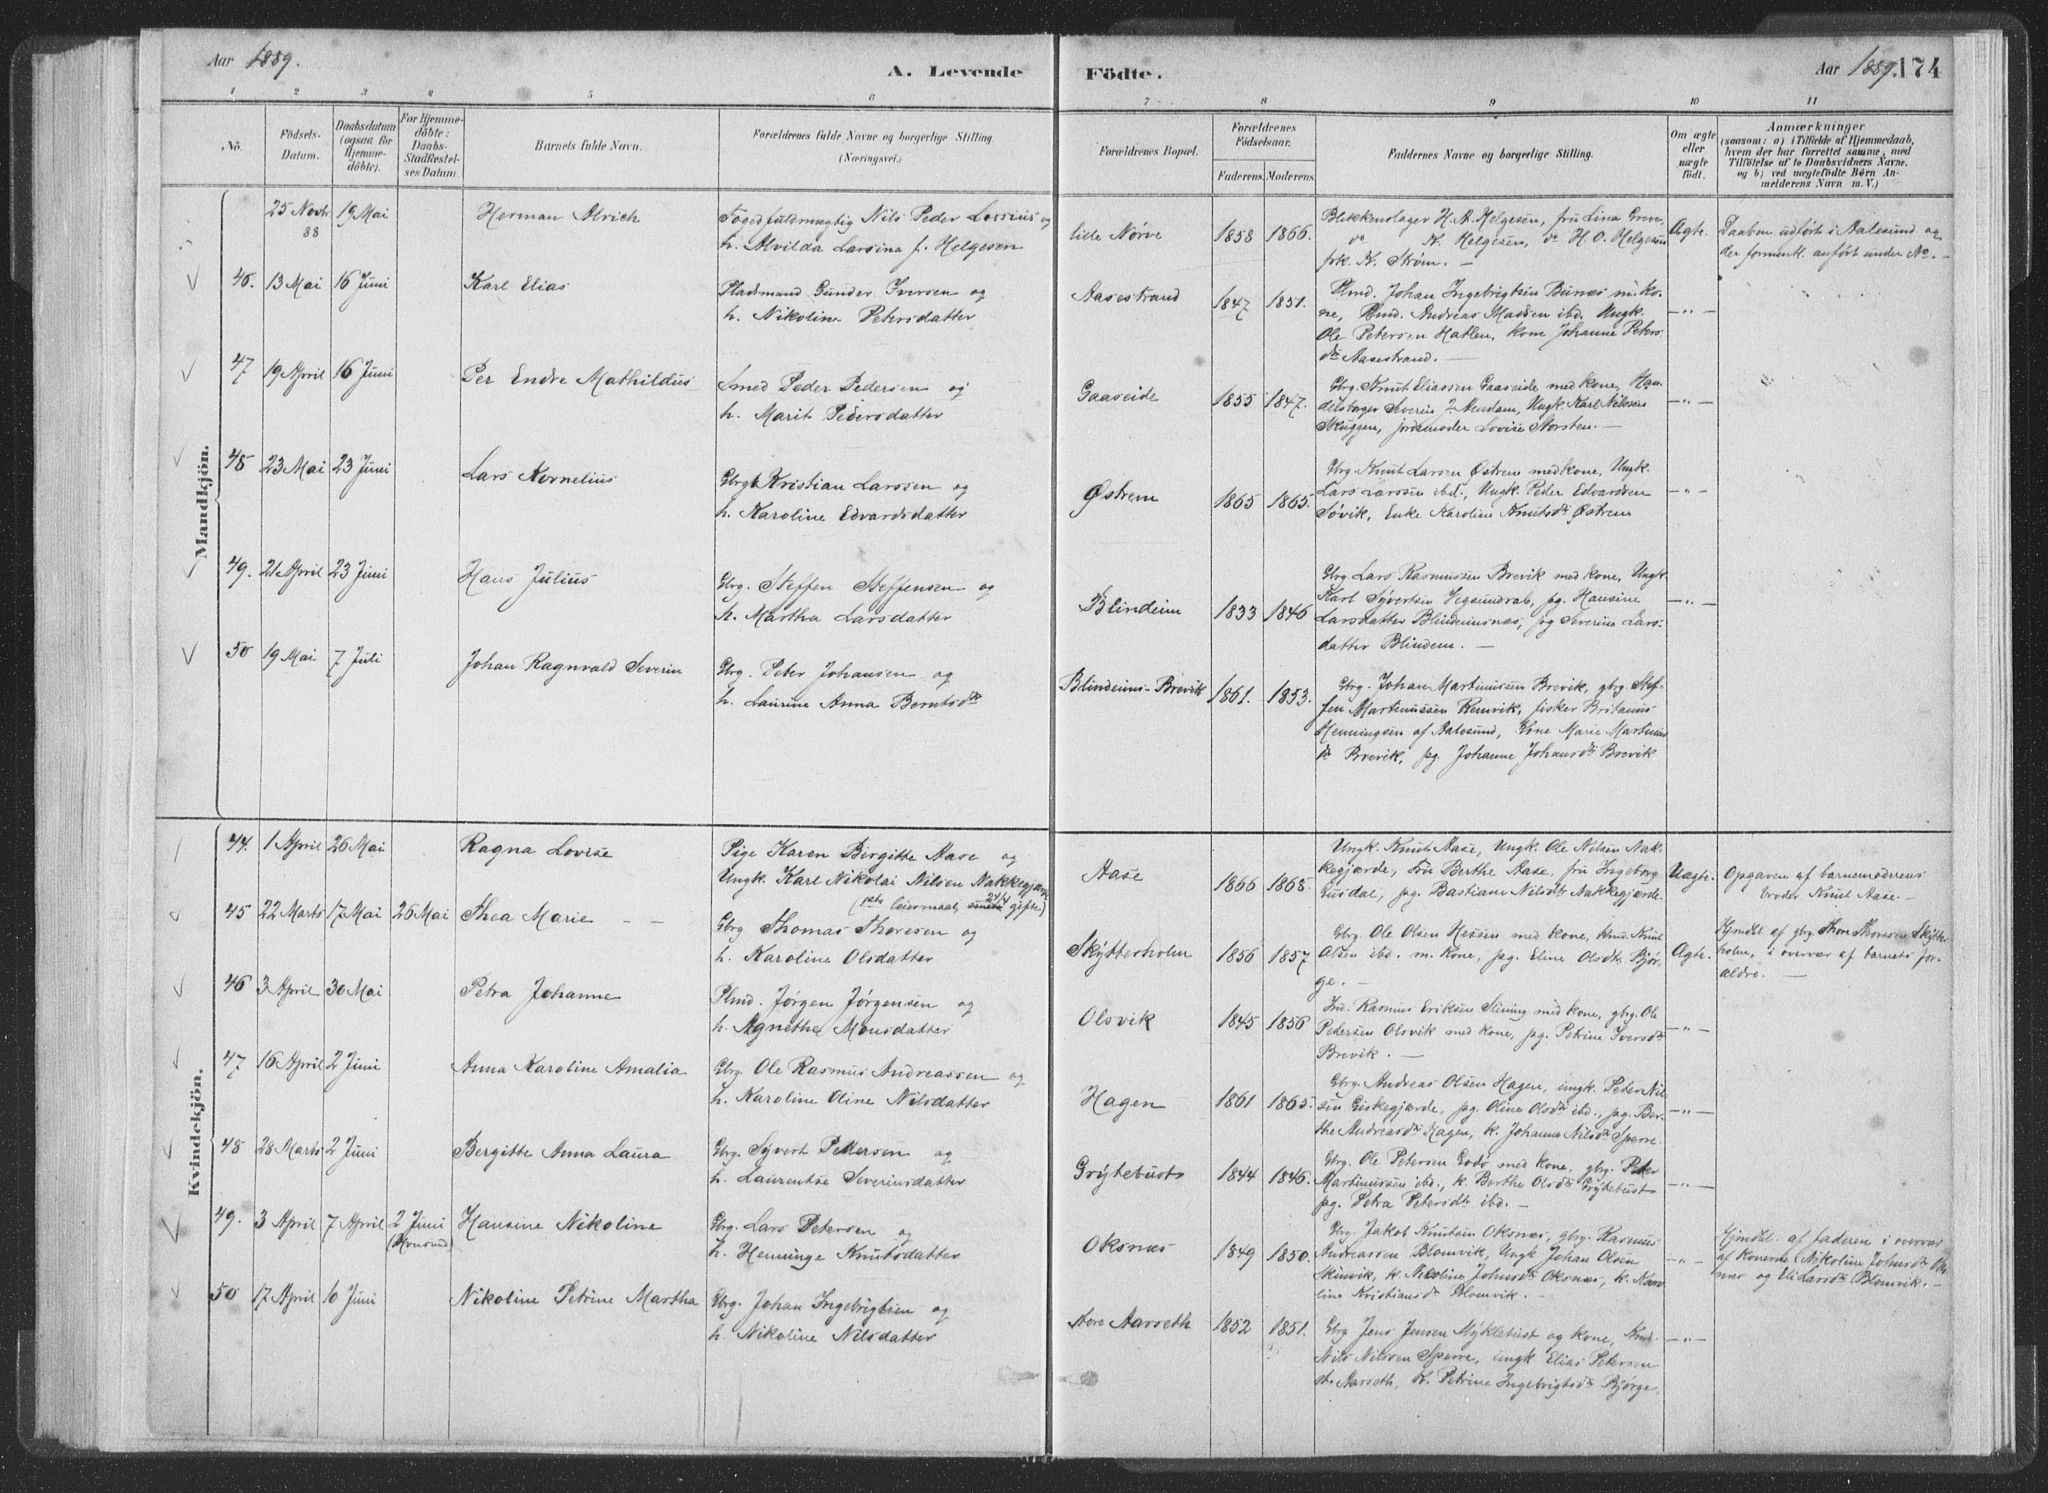 Aar 1889.
A. Levende Födte.
Aar 1889.
174
1 2 3 4 5 6 7 8 9 10 11
No.
Födsels-Datum.
Daabsdatum (ogsaa for Hjemmedöbte).
For Hjemmedöbte: Daabs-Stadfæstelses Datum.
Barnets fulde Navn.
Forældrenes fulde Navne og borgerlige Stilling. (Næringsvei.)
Forældrenes Bopæl.
Forældrenes Födselsaar.
Faderens. Moderens.
Faddernes Navne og borgerlige Stilling.
Om ægte eller uægte födt.
Anmærkninger
(saasom: a) i Tilfælde af Hjemmedaab, hvem der har forrettet samme, med Tilföielse af to Daabsvidners Navne. og b) ved uægtefödte Börn Anmelderens Navn m. V.)
Mandkjön.
25 Novbr 88 19 Mai Herman Ulrich
Fogedfuldmægtig Nils Peder Lossius og
h. Alvilda Larsina f. Helgesen
lille Nørve 1858 1866.
Blikkenslager H. A. Helgesen, fru Lina Greve,
do N. Helgesen, do H. O. Helgesen
frk. N. Strøm. —
Ægte.
Daaben udført i Aalesund og
der formentl. anført under No. —
46. 13 Mai 16 Juni Karl Elias
Pladsmand Gunder Iversen og
h. Nikoline Petersdatter
Aasestrand 1847 1851.
Plmd. Johan Ingebrigtsen Bunæs m. ko-
ne, Plmd. Andreas Madsen ibd. Ungk.
Ole Petersen Hatlen, kone Johanne Peters
dtr Aasestrand. —
— " —
47 19 April 16 Juni Per Endre Mathildus
Smed Peder Pedersen og
h. Marit Pedersdatter
Gaaseide 1855 1847.
Gbrg. Knut Eliassen Gaaseide med kone, Han-
delsborger Severin J. Aendam, Ungk. Karl Nilssen
Skuggen, jordemoder Lovise Storsten. —
— " —
48 23 Mai 23 Juni Lars Kornelius
Gbrg. Kristian Larssen og
h. Karoline Edvardsdatter
Østrem 1865 1865.
Gbrg. Knut Larsen Østrem med kone, Ungk.
Lars Larssen ibd., Ungk. Peder Edvardsen
Søvik, Enke Karoline Knutsdtr Østrem
— " —
49. 21 April 23 Juni Hans Julius
Gbrg. Steffen Steffensen og
h. Martha Larsdatter
Blindeim 1833 1846
Gbrg Lars Rasmussen Brevik med kone, Ungk.
Karl Syvertsen Vegsundrab, pg. Hansine
Larsdatter Blindeimsnæs, pg Severine Lars-
datter Blindeim. —
— " —
50 19 Mai 7 Juli Johan Ragnvald Severin
Gbrg. Peter Johansen og
h. Laurine Anna Berntsdtr
Blindeims-Brevik 1861. 1853.
Gbrg. Johan Martinussen Brevik, gbrg. Stef-
fen Martinussen Remvik, fisker Britanus
Henningsen af Aalesund, Kone Marie Martinus
dr Brevik, pg. Johanne Johansdtr Brevik
Kvindekjön.
44. 1 April 26 Mai Ragna Lovise
Pige Karen Birgitte Aase og
Ungk. Karl Nikolai Nilsen Nakkegjærde
Aase 1866 1868.
Ungk. Knut Aase, Ungk. Ole Nilsen Nak-
kegjærde, fru Berthe Aase, fru Ingeborg
Gusdal, pg. Bastiane Nilsdtr Nakkegjærde.
Uægte.
Opgaven af barnemoderens
broder Knut Aase. —
45 22 Marts 17 Mai 26 Mai Thea Marie
Gbrg Thomas Thoresen og
h. Karoline Olsdatter
Skytterholm 1856 1857
Gbrg. Ole Olsen Hessen med kone, Kmd. Knut
Olsen ibd. m. Kone, pg. Eline Olsdtr Bjør-
ge. —
Ægte.
Hjmdbt af gbrg. Thore Thoresen Skytter-
holm, i overvær af barnets for-
ældre. —
46 3 April 30 Mai Petra Johanne
Plmd. Jørgen Jørgensen og
h. Agnethe Monsdatter
Olsvik 1845 1856
Ind. Rasmus Eriksen Slining med kone, gbrg. Ole
Petersen Olsvik med kone, pg. Petrine Iversdtr
Brevik. —
— " —
47 16 April 2 Juni Anna Karoline Amalia
Gbrg. Ole Rasmus Andreassen og
h. Karoline Oline Nilsdatter
Hagen 1861 1865.
Gbrg. Andreas Olsen Hagen, ungk. Peter Nil-
sen Giskegjærde, pg. Oline Olsdtr ibd., pg. Ber-
the Andreasdtr Hagen, k. Johanne Nilsdtr Sperre.
— " —
48 28 Marts 2 Juni Bergitte Anna Laura
Gbrg. Syvert Pettersen og
h. Laurentse Severinsdatter
Grytebust 1844 1846.
Gbrg. Ole Petersen Godø med kone, gbrg. Peter
Martinussen ibd., k. Berthe Olsdtr Grytebust
pg. Petra Petersdtr ibd. —
— " —
49. 3 April 7 April 2 Juni Hansine Nikoline
Gbrg. Lars Petersen og
h. Henninge Knutsdatter
Oksnæs 1849 1850.
Gbrg. Jakob Knutsen Oksnæs, gbrg. Rasmus
Andreassen Blomvik, Ungk Johan Olsen
Skinvik, k. Nikoline Johnsdtr Oksnæs, k. Karo-
line Kristiansdtr Blomvik. —
— " —
Hjmdbt. af faderen i overvær
af konerne Nikoline Johnsdtr Oks-
næs og Eli Larsdtr Blomvik. —
50 17 April 10 Juni Nikoline Petrine Martha
Gbrg. Johan Ingebrigtsen og
h. Nikoline Nilsdatter
Store Aarseth 1852 1851.
Gbrg Jens Jensen Myklebust og kone, Kmd.
Nils Nilssen Sperre, ungk Elias Petersen
St. Aarseth, k. Petrine Ingebrigtsdtr Bjørge.
— " —